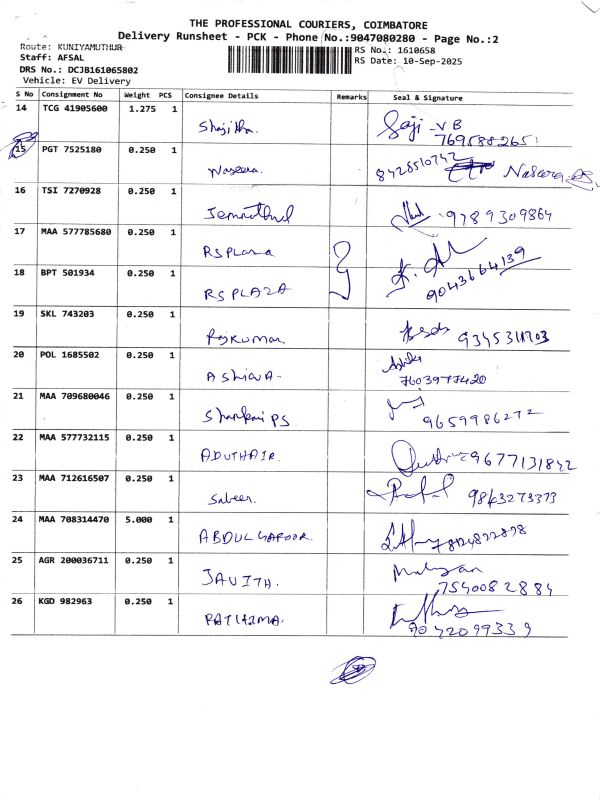 THE PROFESSIONAL COURIERS, COIMBATORE
Delivery Runsheet - PCK - Phone No.:9047080280 - Page No.:2
Route: KUNIYAMUTHUR
Staff: AFSAL
DRS No.: DCJB161065802
Vehicle: EV Delivery
RS No.: 1610658
RS Date: 10-Sep-2025
S No Consignment No Weight PCS Consignee Details Remarks Seal & Signature
14 TCG 41905600 1.275 1 Shajitha. Saji - VB
7695882651
15 PGT 7525180 0.250 1 Naseera. 8428510742 Naseera
16 TSI 7270928 0.250 1 9789309864
17 MAA 577785680 0.250 1 RS Plaza
18 BPT 501934 0.250 1 RS PLAZA 9043664139
19 SKL 743203 0.250 1 Rajkumar.
20 POL 1685502 0.250 1 Ashiq A.
7603977420
21 MAA 709680046 0.250 1 9659986272
22 MAA 577732115 0.250 1 9677131842
23 MAA 712616507 0.250 1 Sabeer. 9843273373
24 MAA 708314470 5.000 1 ABDUL GAFOOR.
25 AGR 200036711 0.250 1 JAVITH.
7540082884
26 KGD 982963 0.250 1 FATHIMA.
9042099339